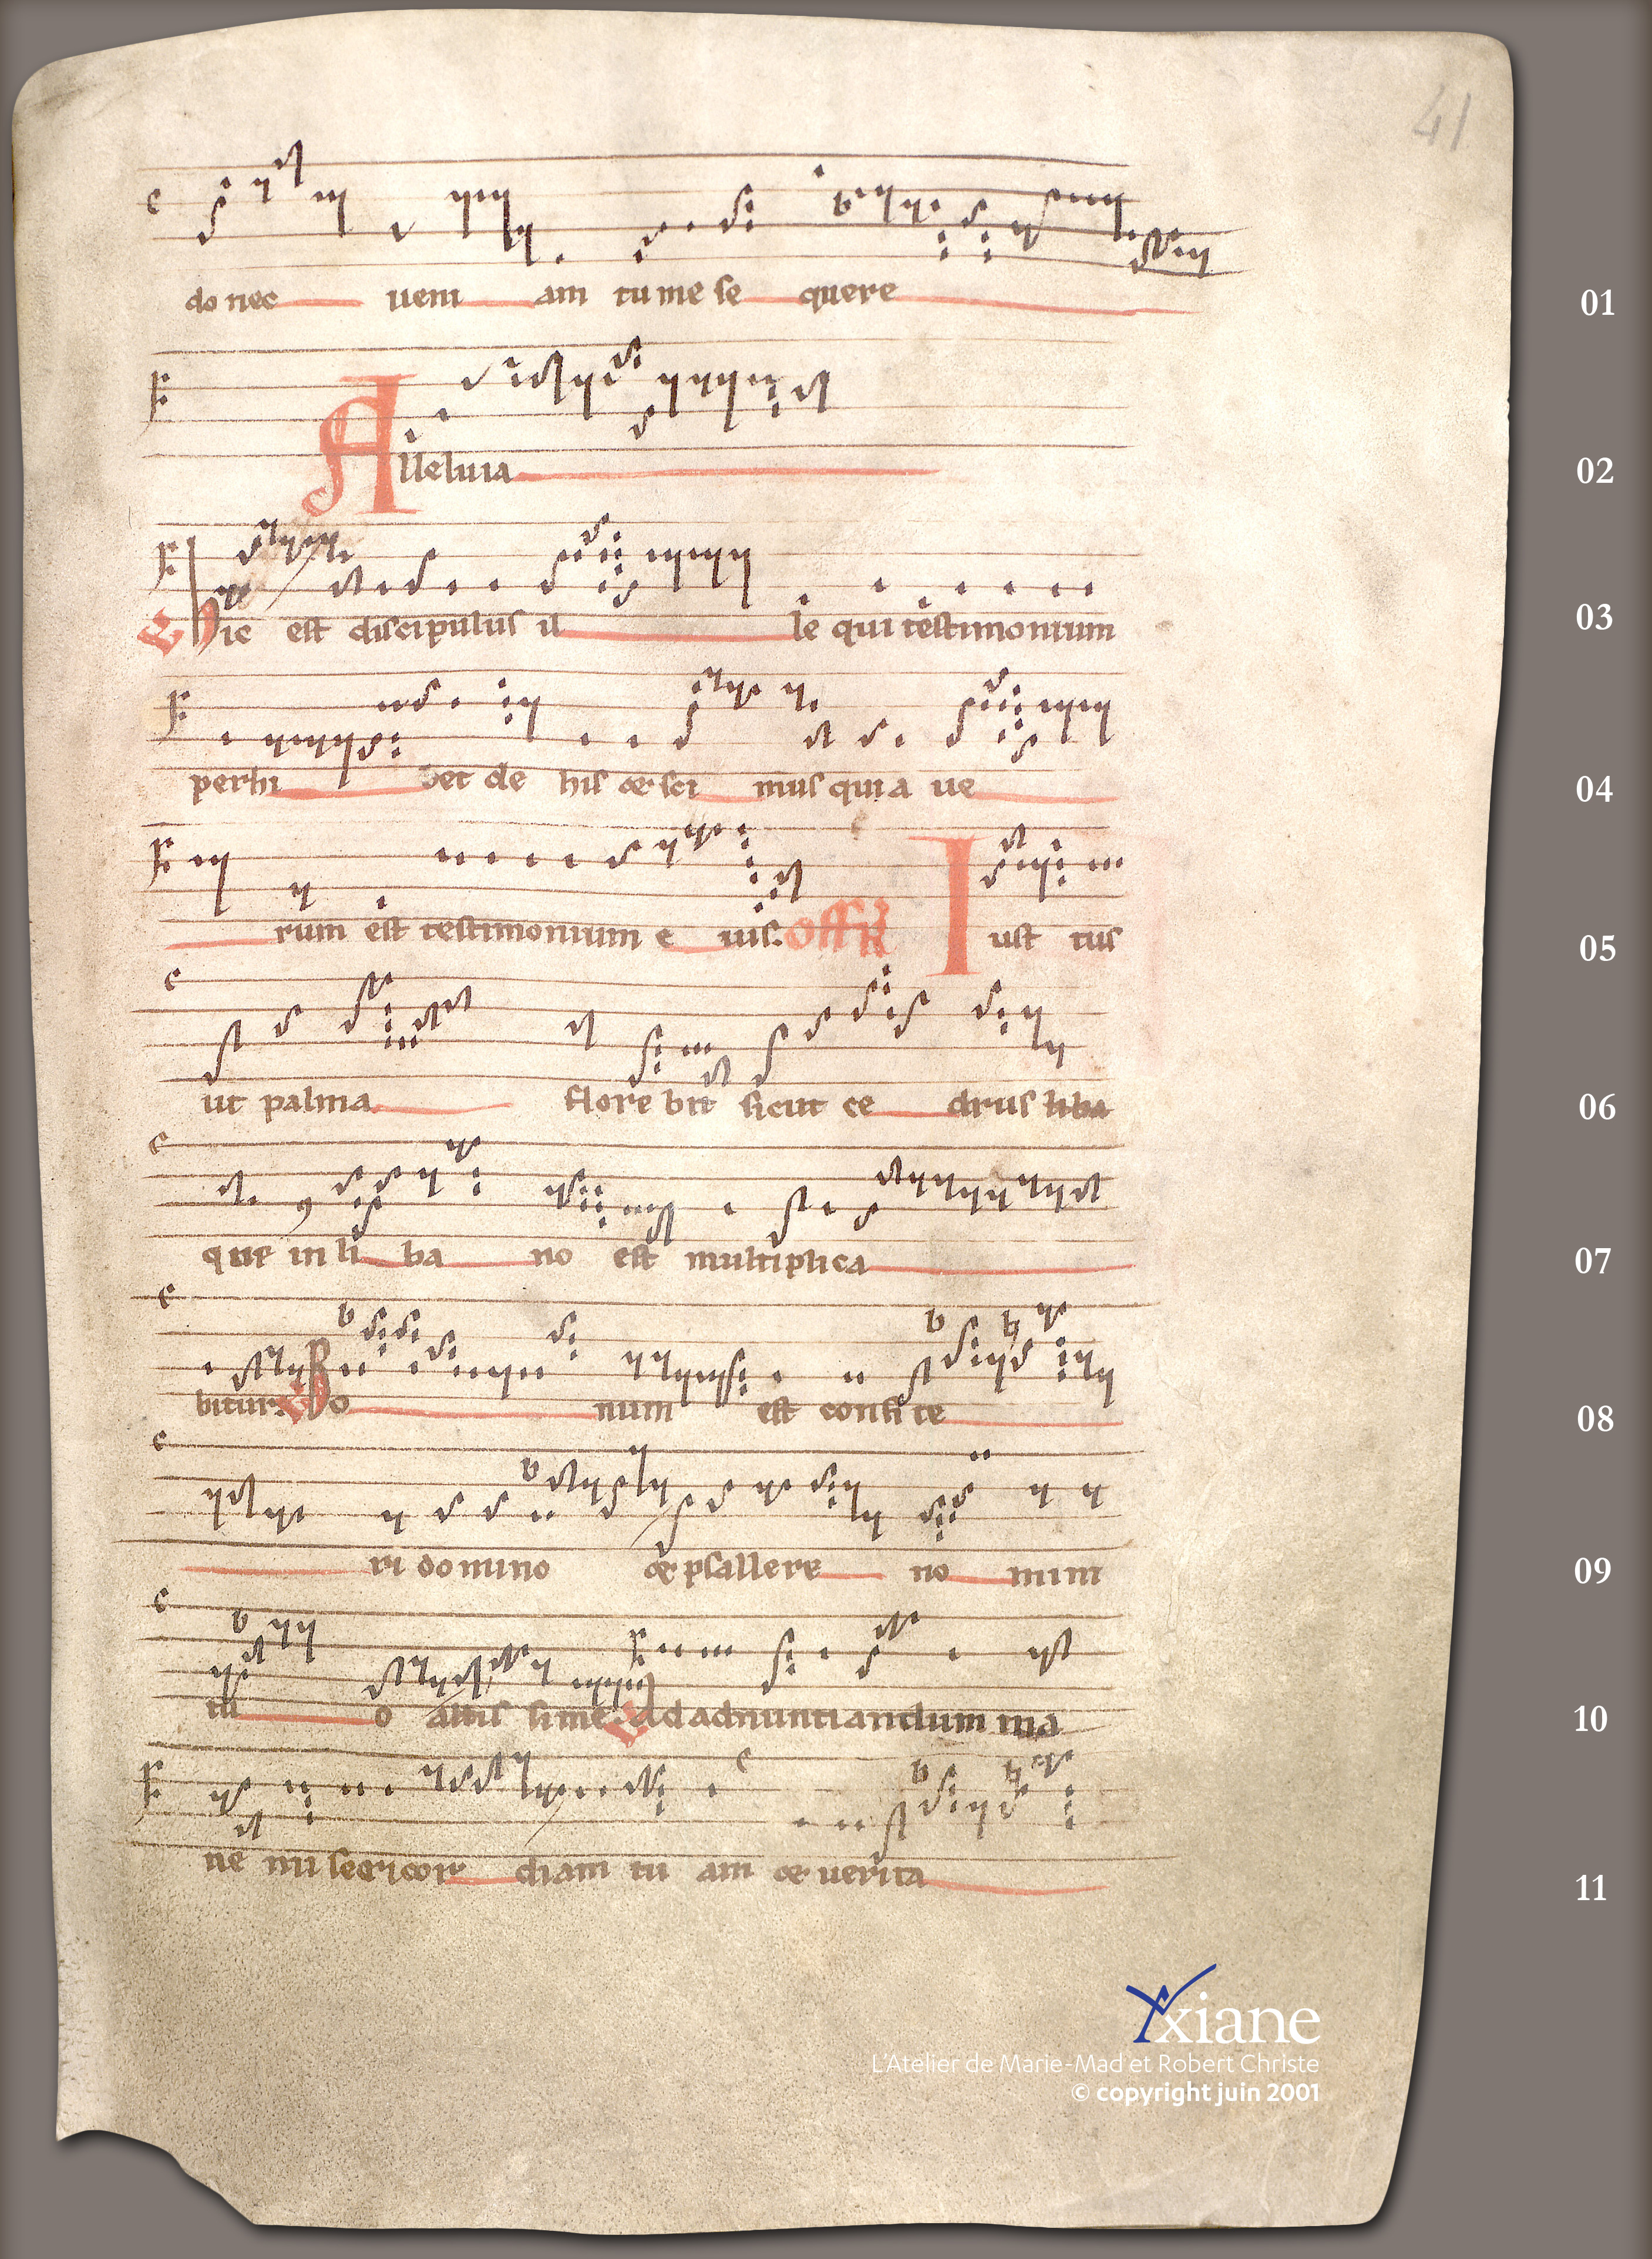 41
do nec ueni am tu me se quere 01
Alleluia 02
Hic est discipulus il le qui testimonium 03
perhi bet de his & sci mus quia ue 04
rum est testimonium e ius. Off Iust tus 05
ut palma flore bit sicut ce drus liba 06
que in li ba no est multiplica 07
bitur. Bo num est confi te 08
ri domino & psallere no mini 09
tu o altis sime. Ad adnuntiandum ma 10
ne mi sericor diam tu am & uerita 11
Yxiane
L'Atelier de Marie-Mad et Robert Christe
© copyright juin 2001